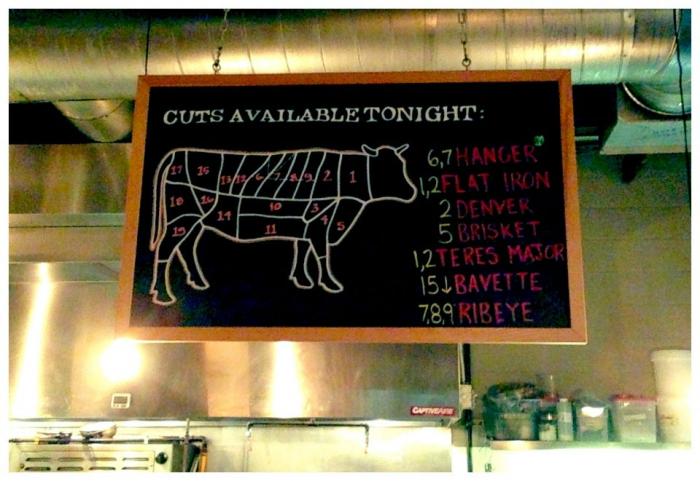 CUTS AVAILABLE TONIGHT:
17 15 13 12 6 7 8 9 2 1
18 16 14 10 3
19 11 4 5
6,7 HANGER
1,2 FLAT IRON
2 DENVER
5 BRISKET
1,2 TERES MAJOR
15↓ BAVETTE
7,8,9 RIBEYE
CAPTIVEAIRE